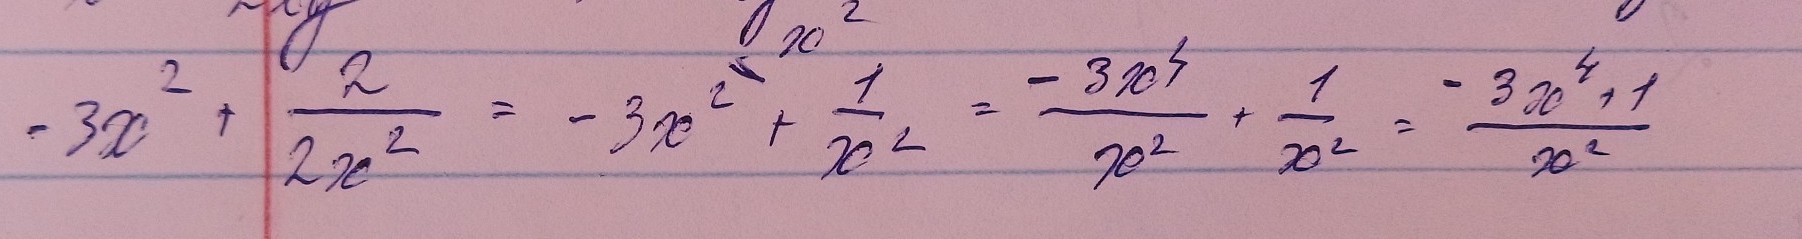 x²
-3x² + 2/2x² = -3x² + 1/x² = -3x⁴/x² + 1/x² = -3x⁴+1/x²